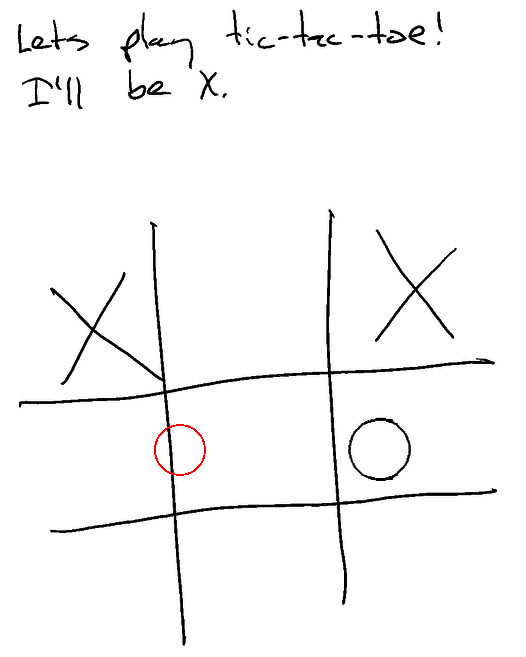 Lets play tic-tac-toe!
I'll be X.
X X
O O